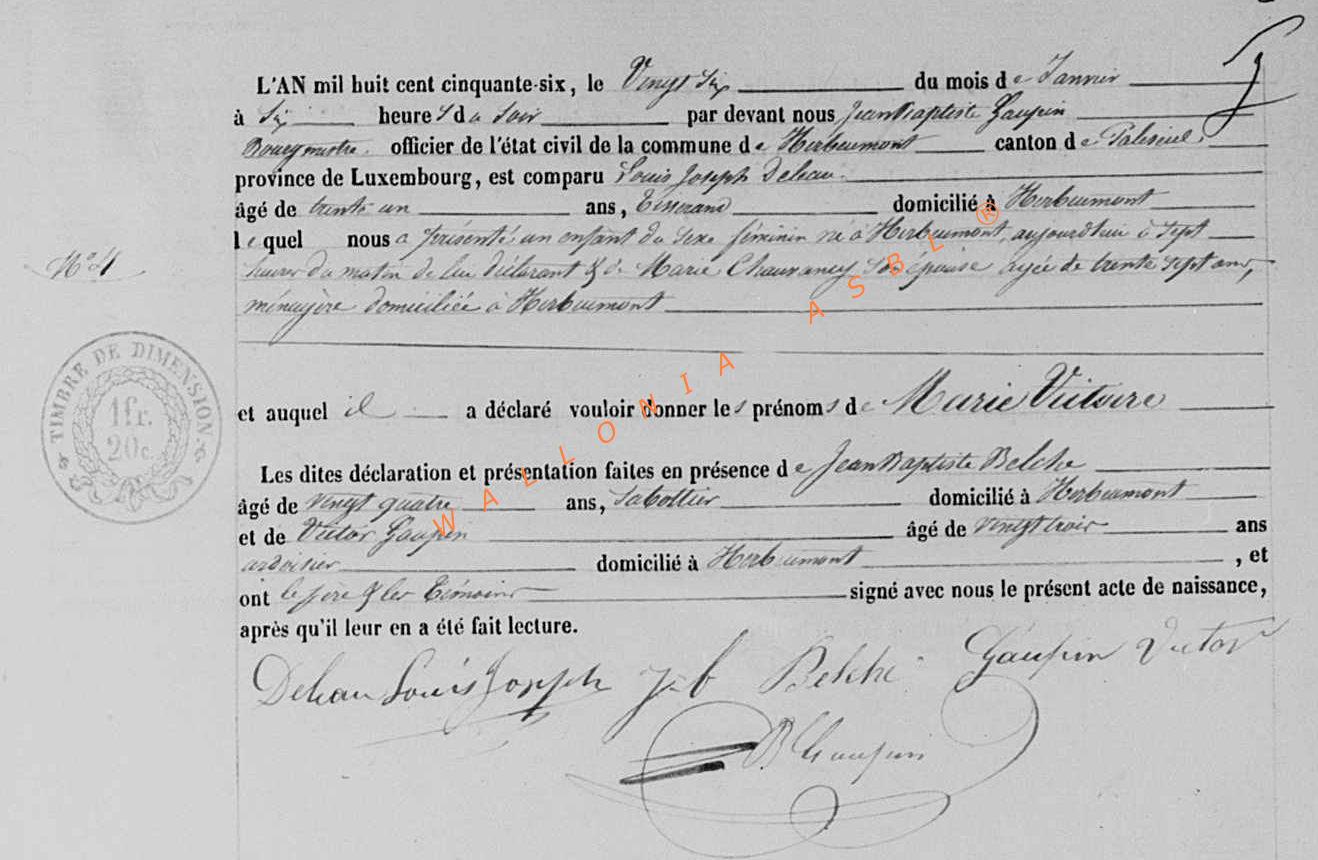 9
L'AN mil huit cent cinquante-six, le Vingt Six du mois de Janvier
à Six heures du Soir par devant nous Jean Baptiste Gaupin
Bourgmestre officier de l'état civil de la commune de Herbeumont canton de Paliseul,
province de Luxembourg, est comparu Louis Joseph Dehau
âgé de trente un ans, Tisserand domicilié à Herbeumont
lequel nous a présenté un enfant du sexe féminin né à Herbeumont, aujourd'hui à sept
heures du matin de lui déclarant & de Marie Chauvancy son épouse âgée de trente sept ans,
N° 4
ménagère domiciliée à Herbeumont
et auquel il a déclaré vouloir donner les prénoms de Marie Victoire
TIMBRE DE DIMENSION
1fr.
20c.
Les dites déclaration et présentation faites en présence de Jean Baptiste Belche
âgé de vingt quatre ans, Sabottier domicilié à Herbeumont
et de Victor Gaupin âgé de vingt trois ans
ardoisier domicilié à Herbeumont, et
ont le père & les témoins signé avec nous le présent acte de naissance,
après qu'il leur en a été fait lecture.
Dehau Louis Joseph J-b Belche Gaupin Victor
JB Gaupin
WALLONIA ASBL ®